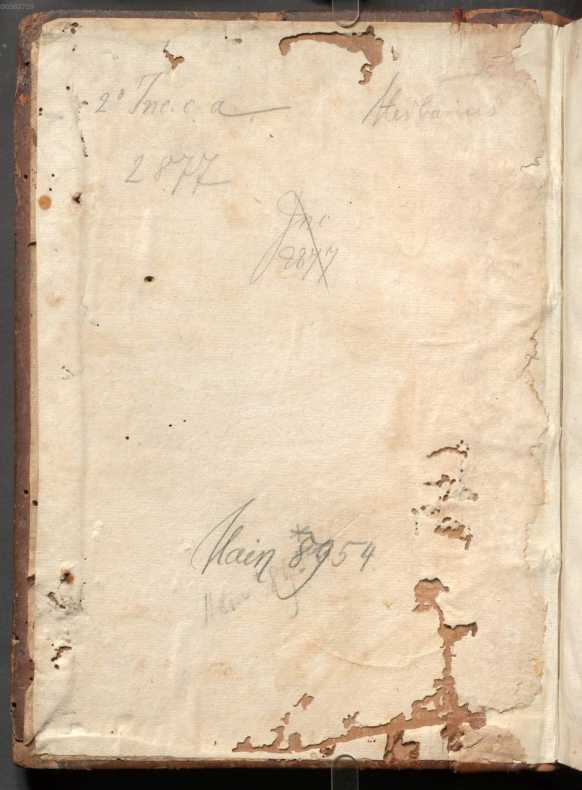 2° Inc. c. a. Herbarius
2877
Inc
2877
Hain *8954